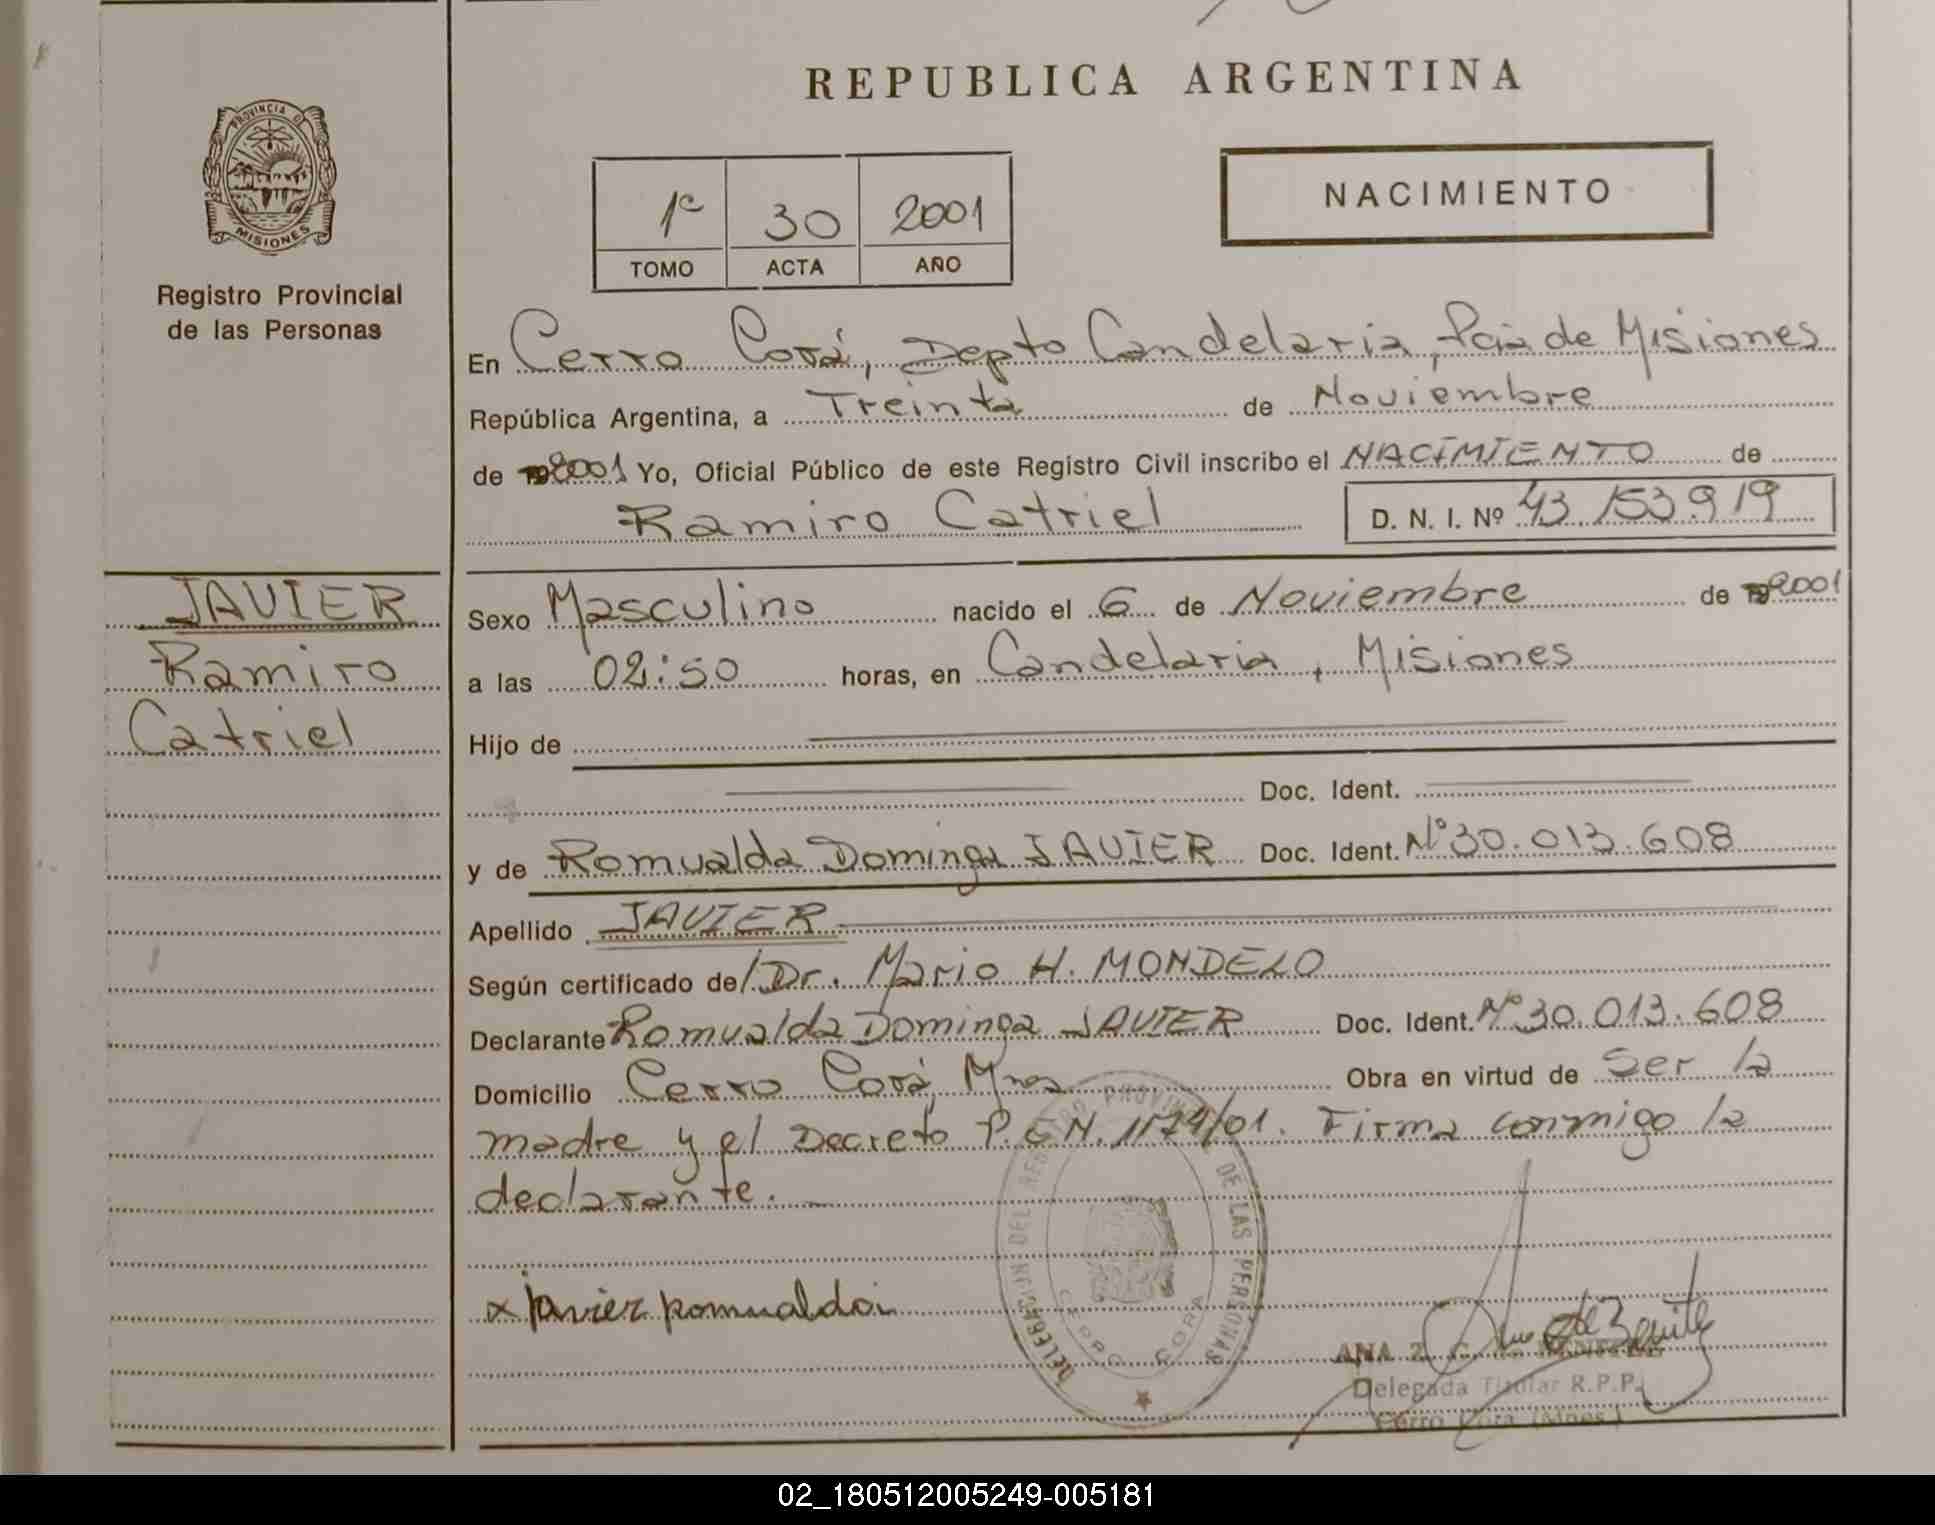 REPUBLICA ARGENTINA
PROVINCIA DE
MISIONES
Registro Provincial
de las Personas
1º 30 2001
TOMO ACTA AÑO
NACIMIENTO
En Cerro Corá, Depto Candelaria, Pcia de Misiones
República Argentina, a Treinta de Noviembre
de 2001 Yo, Oficial Público de este Registro Civil inscribo el NACIMIENTO de
Ramiro Catriel D. N. I. Nº 43.153.919
JAVIER
Ramiro
Catriel
Sexo Masculino nacido el 6 de Noviembre de 2001
a las 02:50 horas, en Candelaria, Misiones
Hijo de
Doc. Ident.
y de Romualda Dominga JAVIER Doc. Ident. Nº 30.013.608
Apellido JAVIER
Según certificado de/ Dr. Mario H. MONDELO
Declarante Romualda Dominga JAVIER Doc. Ident. Nº 30.013.608
Domicilio Cerro Corá, Mnes Obra en virtud de Ser la
madre y el Decreto P.E.N. /01. Firma conmigo la
declarante.
x javier Romualda
DELEGACION DEL REGISTRO PROVINCIAL DE LAS PERSONAS
CERRO CORA
ANA
Delegada Titular R.P.P.
Cerro Cora (Mnes.)
02_180512005249-005181